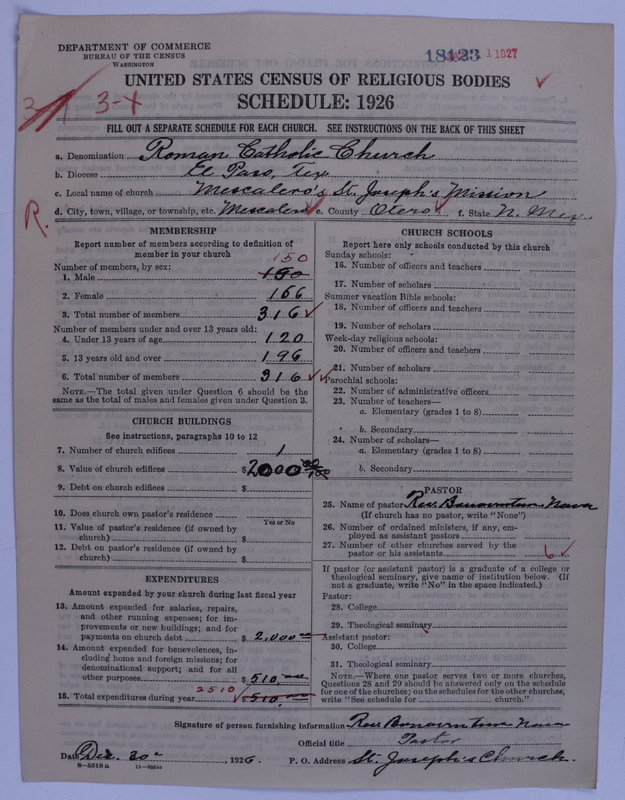 DEPARTMENT OF COMMERCE
BUREAU OF THE CENSUS
WASHINGTON
18123 1 1927
UNITED STATES CENSUS OF RELIGIOUS BODIES
SCHEDULE: 1926
3-4
FILL OUT A SEPARATE SCHEDULE FOR EACH CHURCH. SEE INSTRUCTIONS ON THE BACK OF THIS SHEET
a. Denomination Roman Catholic Church
b. Diocese El Paso, Tex
c. Local name of church Mescalero's St. Joseph's Mission
R.
d. City, town, village, or township, etc. Mescalero e. County Otero f. State N. Mex.
MEMBERSHIP
Report number of members according to definition of
member in your church
150
Number of members, by sex:
1. Male 150
2. Female 166
3. Total number of members 316
Number of members under and over 13 years old:
4. Under 13 years of age 120
5. 13 years old and over 196
6. Total number of members 316
NOTE.—The total given under Question 6 should be
same as the total of males and females given under Question 3.
CHURCH BUILDINGS
See instructions, paragraphs 10 to 12
7. Number of church edifices 1
8. Value of church edifices $2000
9. Debt on church edifices $
10. Does church own pastor's residence
Yes or No
11. Value of pastor's residence (if owned by
church) $
12. Debt on pastor's residence (if owned by
church) $
EXPENDITURES
Amount expended by your church during last fiscal year
13. Amount expended for salaries, repairs,
and other running expenses; for im-
provements or new buildings; and for
payments on church debt $ 2,000
14. Amount expended for benevolences, in-
cluding home and foreign missions; for
denominational support; and for all
other purposes $ 510
2510
15. Total expenditures during year $510
CHURCH SCHOOLS
Report here only schools conducted by this church
Sunday schools:
16. Number of officers and teachers
17. Number of scholars
Summer vacation Bible schools:
18. Number of officers and teachers
19. Number of scholars
Week-day religious schools:
20. Number of officers and teachers
21. Number of scholars
Parochial schools:
22. Number of administrative officers
23. Number of teachers—
a. Elementary (grades 1 to 8)
b. Secondary
24. Number of scholars—
a. Elementary (grades 1 to 8)
b. Secondary
PASTOR
25. Name of pastor Rev. Bonaventure Nava
(If church has no pastor, write "None")
26. Number of ordained ministers, if any, em-
ployed as assistant pastors
27. Number of other churches served by the
pastor or his assistants 6
If pastor (or assistant pastor) is a graduate of a college or
theological seminary, give name of institution below. (If
not a graduate, write "No" in the space indicated.)
Pastor:
28. College
29. Theological seminary
Assistant pastor:
30. College
31. Theological seminary
NOTE.—Where one pastor serves two or more churches,
Questions 28 and 29 should be answered only on the schedule
for one of the churches; on the schedules for the other churches,
write "See schedule for church."
Signature of person furnishing information Rev. Bonaventure Nava
Official title Pastor
Date Dec. 30, 1926. P. O. Address St. Joseph's Church.
8-5518a